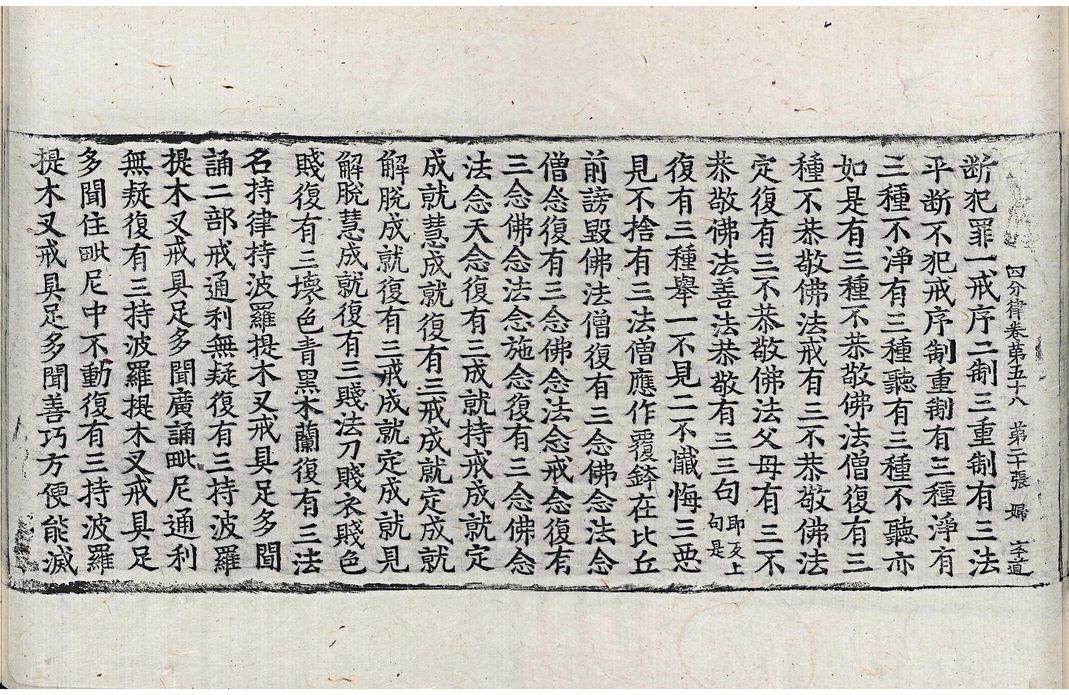 四分律卷第五十八 第二十張 婦 李道
断犯罪一戒序二制三重制有三法
平断不犯戒序制重制有三種淨有
三種不淨有三種聽有三種不聽亦
如是有三種不恭敬佛法僧復有三
種不恭敬佛法戒有三不恭敬佛法
定復有三不恭敬佛法父母有三不
恭敬佛法善法恭敬有三三句 即反上句是
復有三種舉一不見二不懺悔三惡
見不捨有三法僧應作覆鉢在比丘
前謗毀佛法僧復有三念佛念法念
僧念復有三念佛念法念戒念復有
三念佛念法念施念復有三念佛念
法念天念復有三成就持戒成就定
成就慧成就復有三戒成就定成就
解脫成就復有三戒成就定成就見
解脫慧成就復有三賤法刀賤衣賤色
賤復有三壞色青黑木蘭復有三法
名持律持波羅提木叉戒具足多聞
誦二部戒通利無疑復有三持波羅
提木叉戒具足多聞廣誦毗尼通利
無疑復有三持波羅提木叉戒具足
多聞住毗尼中不動復有三持波羅
提木叉戒具足多聞善巧方便能滅